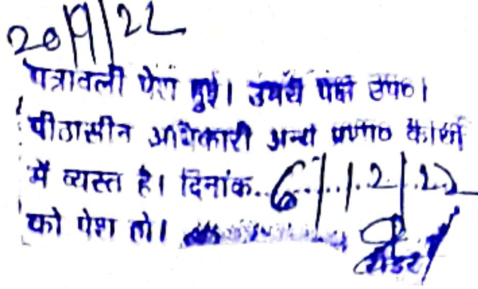 20/9/22
पत्रावली पेश हुई। उभय पक्ष उप०।
पीठासीन अधिकारी अन्य प्रशा० कार्यो
में व्यस्त है। दिनांक..6/12/22
को पेश हो।
रीडर